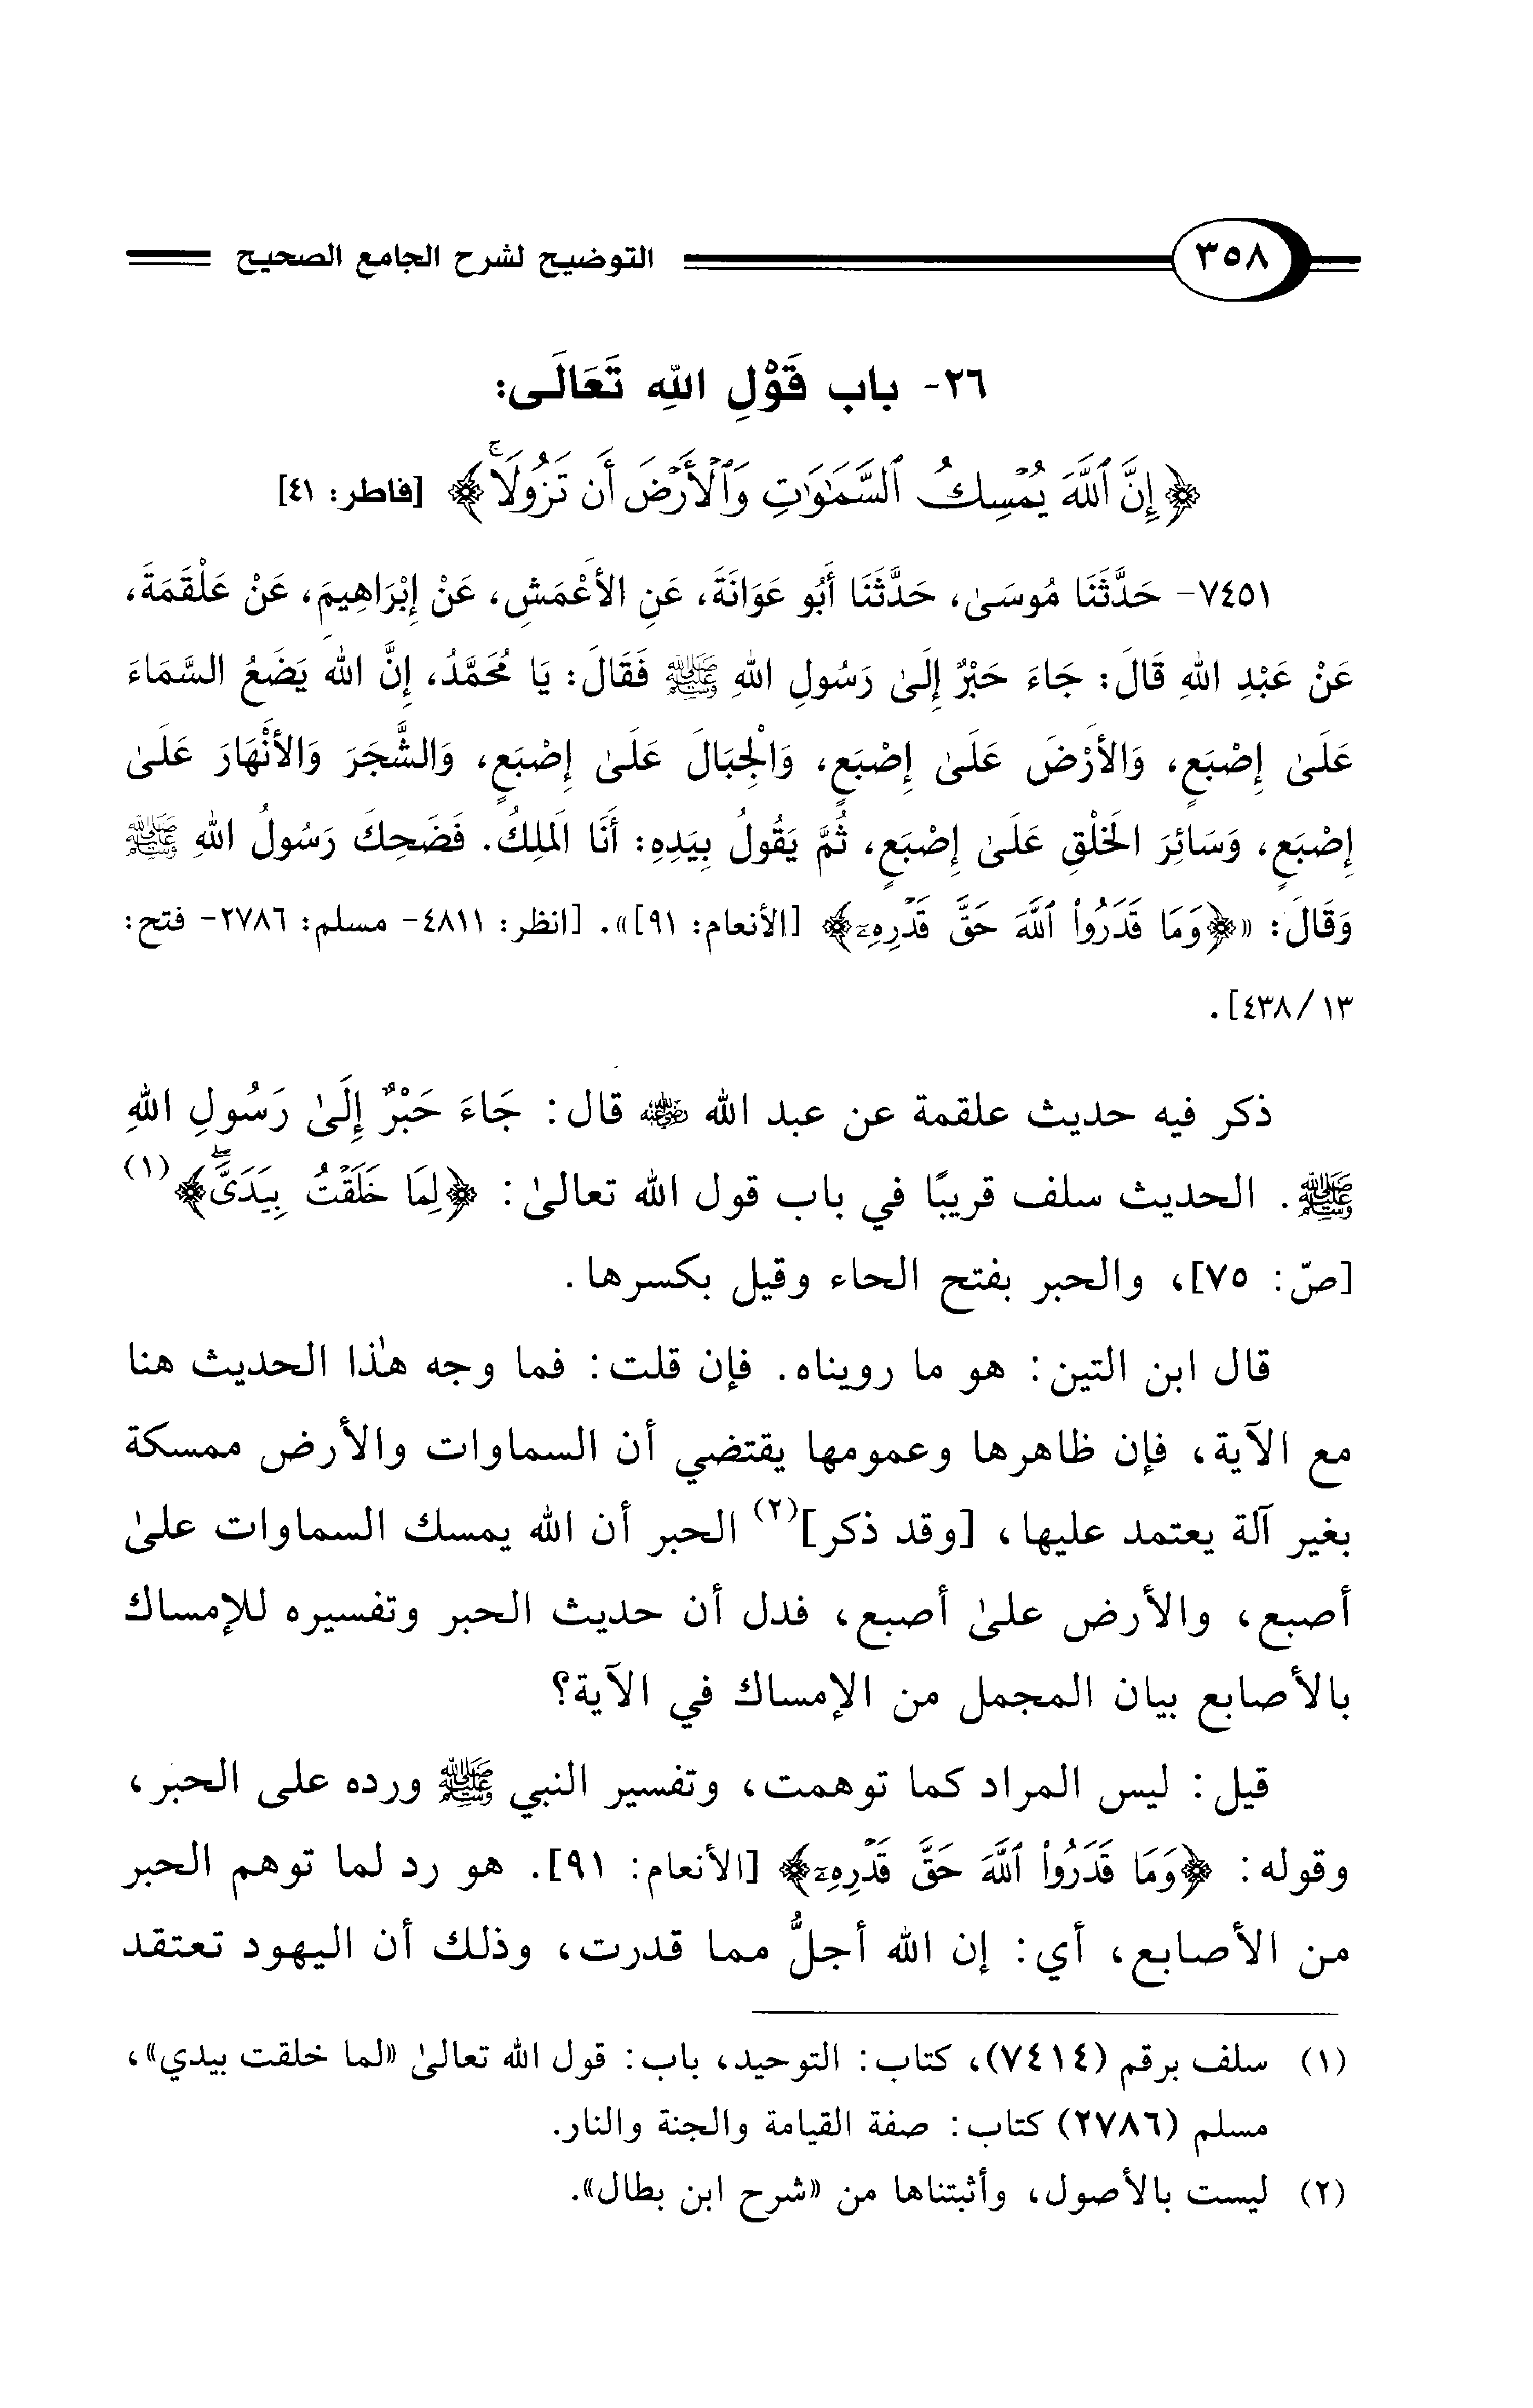 ٣٥٨ التوضيح لشرح الجامع الصحيح
٢٦- باب قَوْلِ اللهِ تَعَالَى:
﴿إِنَّ ٱللَّهَ يُمْسِكُ ٱلسَّمَٰوَٰتِ وَٱلْأَرْضَ أَن تَزُولَاۚ﴾ [فاطر: ٤١]
٧٤٥١- حَدَّثَنَا مُوسَىٰ، حَدَّثَنَا أَبُو عَوَانَةَ، عَنِ الأَعْمَشِ، عَنْ إِبْرَاهِيمَ، عَنْ عَلْقَمَةَ،
عَنْ عَبْدِ اللهِ قَالَ: جَاءَ حَبْرٌ إِلَىٰ رَسُولِ اللهِ ﷺ فَقَالَ: يَا مُحَمَّدُ، إِنَّ اللهَ يَضَعُ السَّمَاءَ
عَلَىٰ إِصْبَعٍ، وَالأَرْضَ عَلَىٰ إِصْبَعٍ، وَالْجِبَالَ عَلَىٰ إِصْبَعٍ، وَالشَّجَرَ وَالأَنْهَارَ عَلَىٰ
إِصْبَعٍ، وَسَائِرَ الَخْلْقِ عَلَىٰ إِصْبَعٍ، ثُمَّ يَقُولُ بِيَدِهِ: أَنَا الَملِكُ. فَضَحِكَ رَسُولُ اللهِ ﷺ
وَقَالَ: «﴿وَمَا قَدَرُوا۟ ٱللَّهَ حَقَّ قَدْرِهِۦٓ﴾ [الأنعام: ٩١]». [انظر: ٤٨١١- مسلم: ٢٧٨٦- فتح:
٤٣٨/١٣].
ذكر فيه حديث علقمة عن عبد الله رضي الله عنه قال: جَاءَ حَبْرٌ إِلَىٰ رَسُولِ اللهِ
ﷺ. الحديث سلف قريبًا في باب قول الله تعالىٰ: ﴿لِمَا خَلَقْتُ بِيَدَىَّۖ﴾(١)
[صّ: ٧٥]، والحبر بفتح الحاء وقيل بكسرها.
قال ابن التين: هو ما رويناه. فإن قلت: فما وجه هٰذا الحديث هنا
مع الآية، فإن ظاهرها وعمومها يقتضي أن السماوات والأرض ممسكة
بغير آلة يعتمد عليها، [وقد ذكر](٢) الحبر أن الله يمسك السماوات علىٰ
أصبع، والأرض علىٰ أصبع، فدل أن حديث الحبر وتفسيره للإمساك
بالأصابع بيان المجمل من الإمساك في الآية؟
قيل: ليس المراد كما توهمت، وتفسير النبي ﷺ ورده على الحبر،
وقوله: ﴿وَمَا قَدَرُوا۟ ٱللَّهَ حَقَّ قَدْرِهِۦٓ﴾ [الأنعام: ٩١]. هو رد لما توهم الحبر
من الأصابع، أي: إن الله أجلُّ مما قدرت، وذلك أن اليهود تعتقد
(١) سلف برقم (٧٤١٤)، كتاب: التوحيد، باب: قول الله تعالىٰ «لما خلقت بيدي»،
مسلم (٢٧٨٦) كتاب: صفة القيامة والجنة والنار.
(٢) ليست بالأصول، وأثبتناها من «شرح ابن بطال».